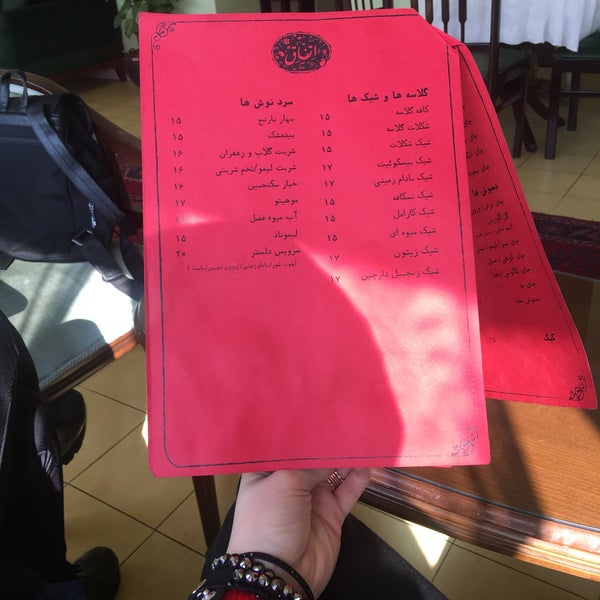 اتفاق
گلاسه ها و شیک ها
کافه گلاسه ۱۵
شکلات گلاسه ۱۵
شیک شکلات ۱۵
شیک بیسکوئیت ۱۷
شیک بادام زمینی ۱۷
شیک نسکافه ۱۵
شیک کارامل ۱۵
شیک میوه ای ۱۵
شیک زیتون ۱۷
شیک زنجبیل دارچین ۱۷
سرد نوش ها
بهار نارنج ۱۵
بیدمشک ۱۵
شربت گلاب و زعفران ۱۶
شربت لیمو/تخم شربتی ۱۶
خیار سکنجبین ۱۶
موهیتو ۱۷
آب میوه فصل
لیموناد ۱۵
سرویس دلستر ۲۰
دمنوش ها
گل گاوزبان
چای به
کیک ۱۵